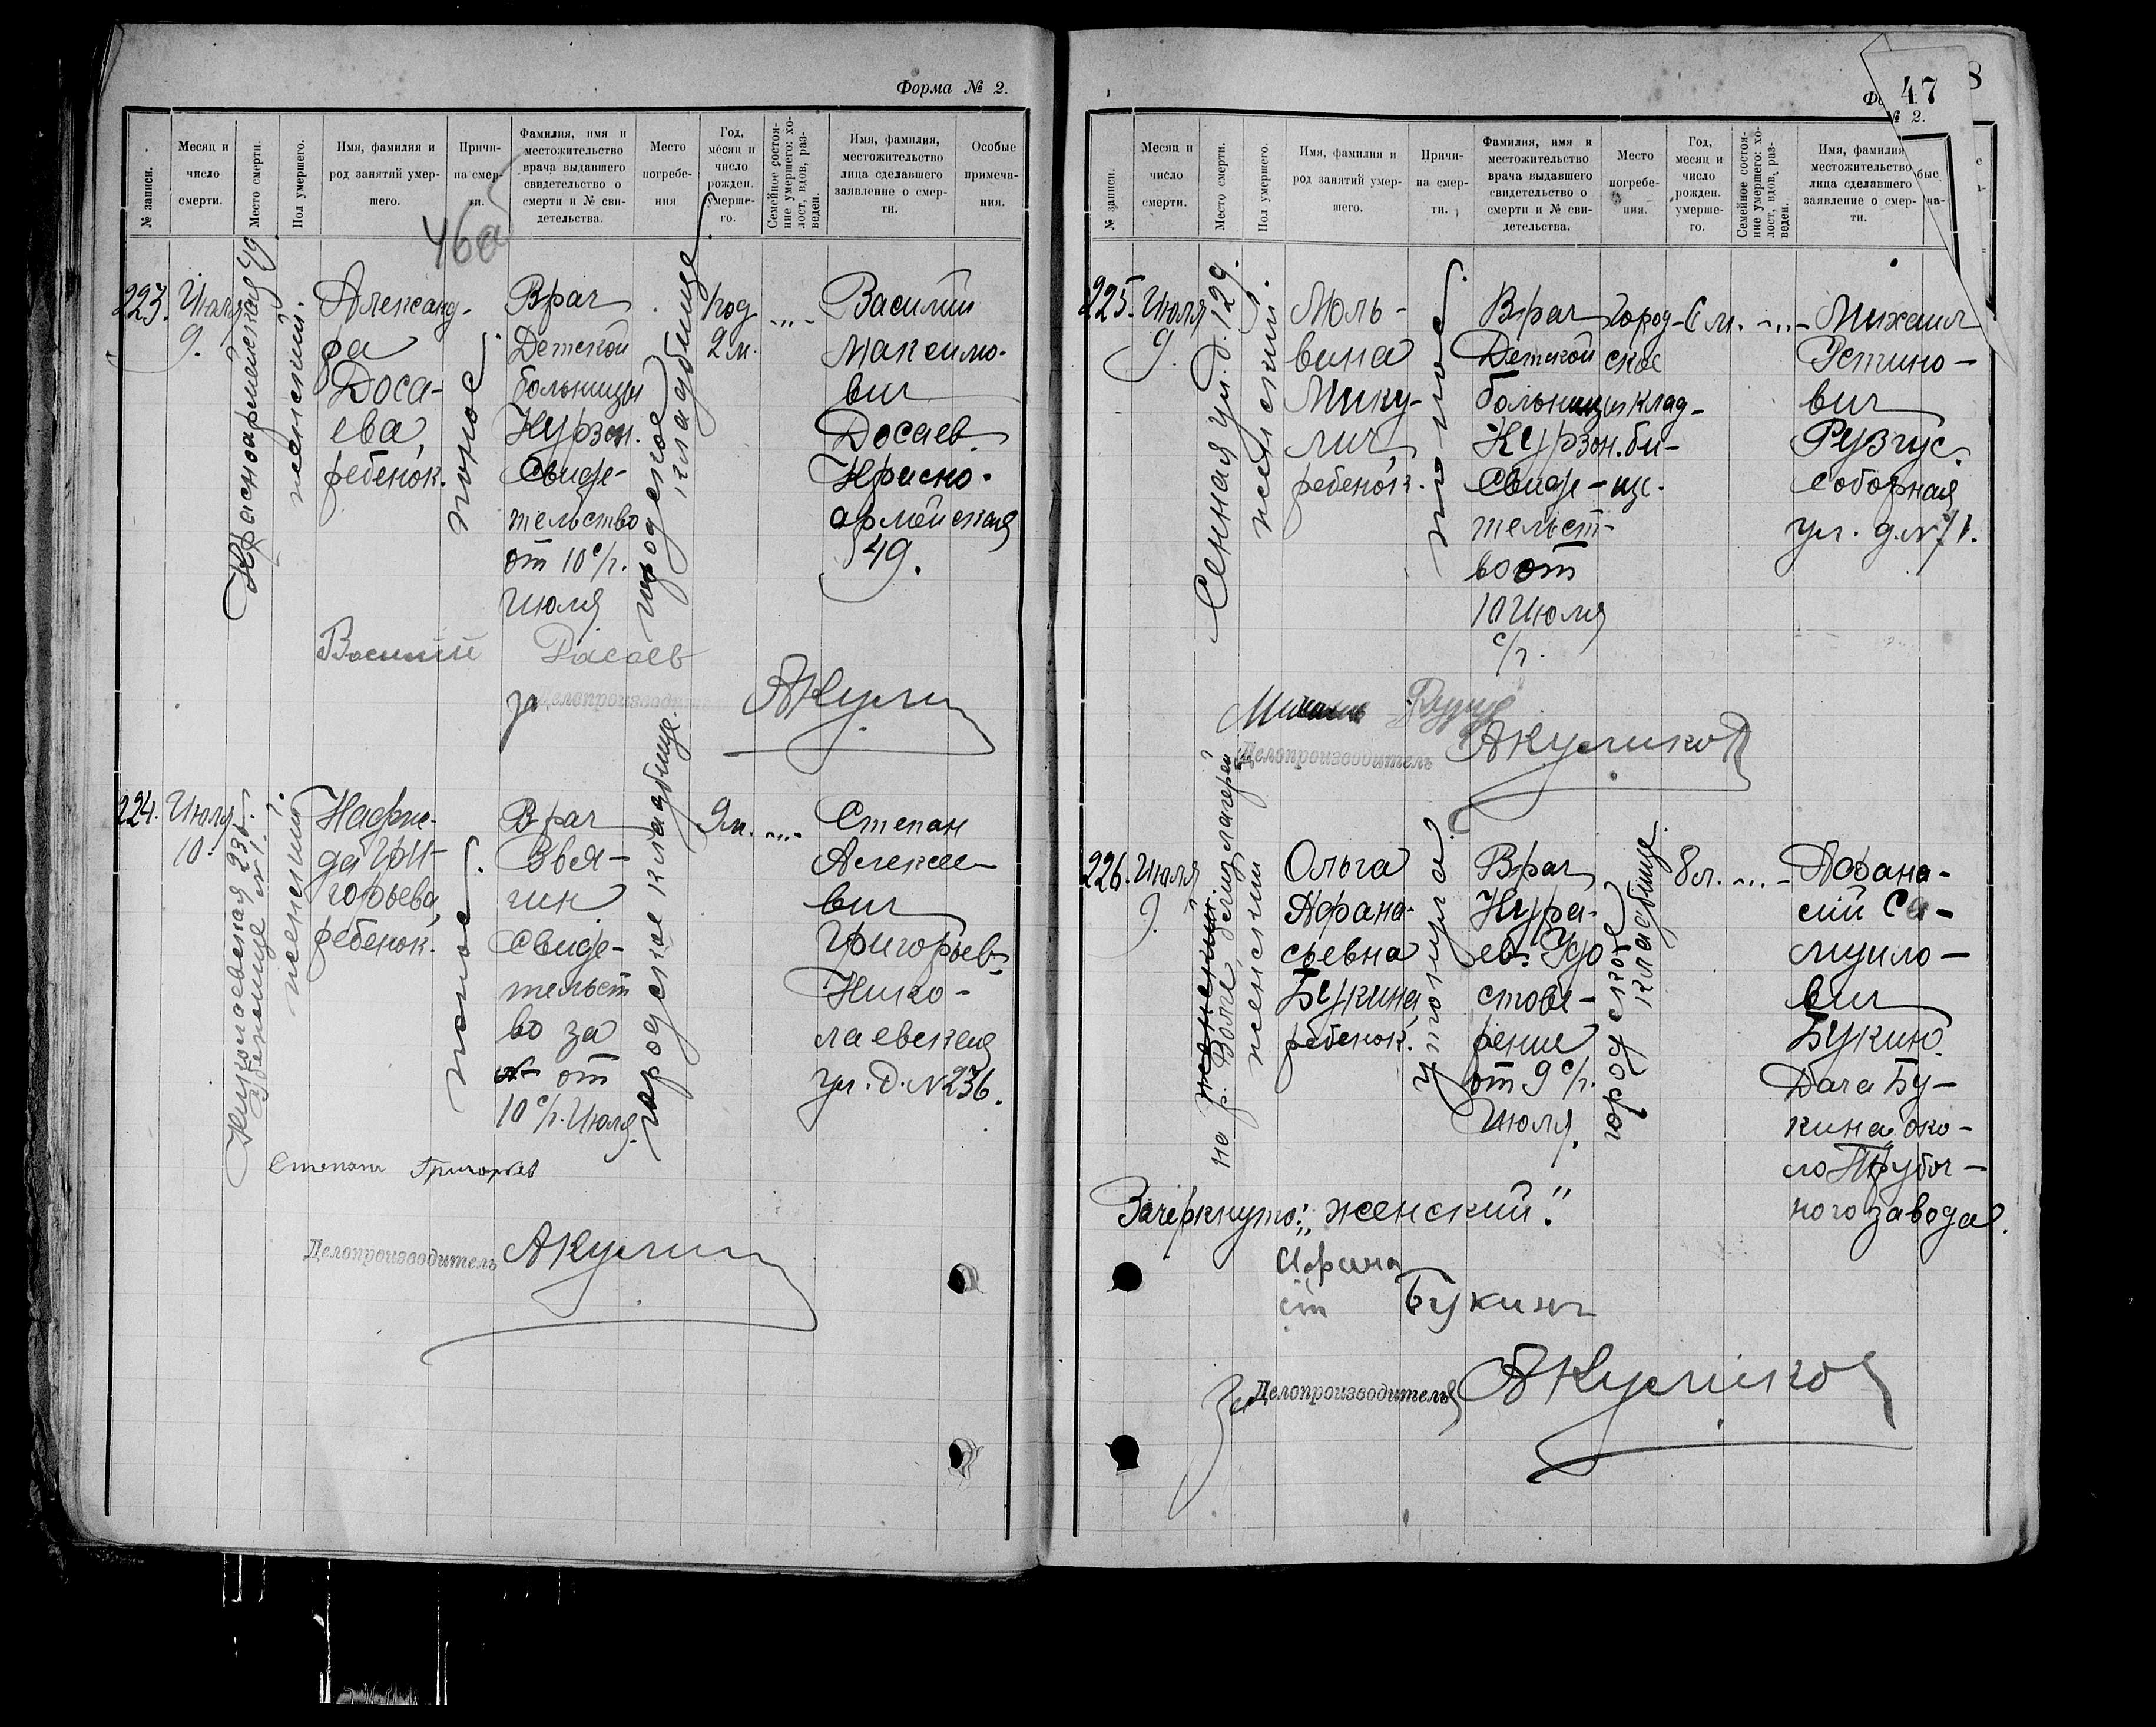 Форма № 2.
№ записи.
Месяц и число смерти.
Место смерти.
Пол умершего.
Имя, фамилия и род занятий умершего.
Причина смерти.
Фамилия, имя и местожительство врача выдавшего свидетельство о смерти и № свидетельства.
Место погребения
Год, месяц и число рожден. умершего.
Семейное состояние умершего: холост, вдов, разведен.
Имя, фамилия, местожительство лица сделавшего заявление о смерти.
Особые примечания.
46а
223.
Июля
9.
Красноармейская 49
женский.
Александ-
ра
Доса-
ева,
ребенок.
понос.
Врач
Детской
больницы
Курзон.
Свиде-
тельство
от 10 с/г.
Июля
городское
кладбище.
1 год
2 м.
Василий
Максимо-
вич
Досаев
Красно-
армейская
49.
Василий Дасаев
за Делопроизводитель
224.
Июля
10.
Николаевская 236.
женский
Надеж-
да Гри-
горьева,
ребенок.
понос.
Врач
Звя-
гин
Свиде-
тельст
во за
№ от
10 с/г. Июля.
городское кладбище.
9 м.
Степан
Алексее-
вич
Григорьев-
Нико-
лаевская
ул. д. № 236.
Степанъ Григорьев
Делопроизводитель
47
8
№ 2.
№ записи.
Месяц и число смерти.
Место смерти.
Пол умершего.
Имя, фамилия и род занятий умершего.
Причина смерти.
Фамилия, имя и местожительство врача выдавшего свидетельство о смерти и № свидетельства.
Место погребения.
Год, месяц и число рожден. умершего.
Семейное состояние умершего: холост, вдов, разведен.
Имя, фамилия местожительство лица сделавшего заявление о смерти.
225.
Июля
9.
Сенная ул. д. 129.
женский.
Мику-
лич,
ребенок.
понос.
Врач
Детской
больницы
Курзон.
Свиде-
тельст-
во от
10 Июля
с/г.
город-
ское
клад-
би-
ще.
6 м.
Михаил
Рузгус.
Соборная
ул. д. № 71.
Делопроизводитель
А Куликов
226.
Июля
9.
женский
на р. Волге, близ лагерей
женский
Ольга
Афана-
сьевна
Букина,
ребенок.
утонула.
Врач
Кура-
ев. Удо
стове-
рение
от 9 с/г.
Июля.
городское
кладбище.
8 л.
Афана-
сий Са-
муило-
вич
Букин.
Дача Бу-
кина око-
ло Трубоч-
ного завода.
Зачеркнуто: „женский."
Букинъ
За Делопроизводителя
А Куликов